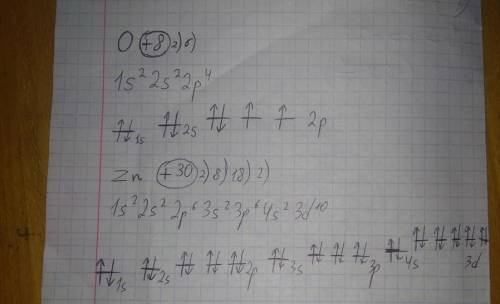 O +8)2)6)
1s² 2s² 2p⁴
↑↓ 1s ↑↓ 2s ↑↓ ↑ ↑ 2p
Zn +30)2)8)18)2)
1s² 2s² 2p⁶ 3s² 3p⁶ 4s² 3d¹⁰
↑↓ 1s ↑↓ 2s ↑↓ ↑↓ ↑↓ 2p ↑↓ 3s ↑↓ ↑↓ ↑↓ 3p ↑↓ 4s ↑↓ ↑↓ ↑↓ ↑↓ ↑↓ 3d